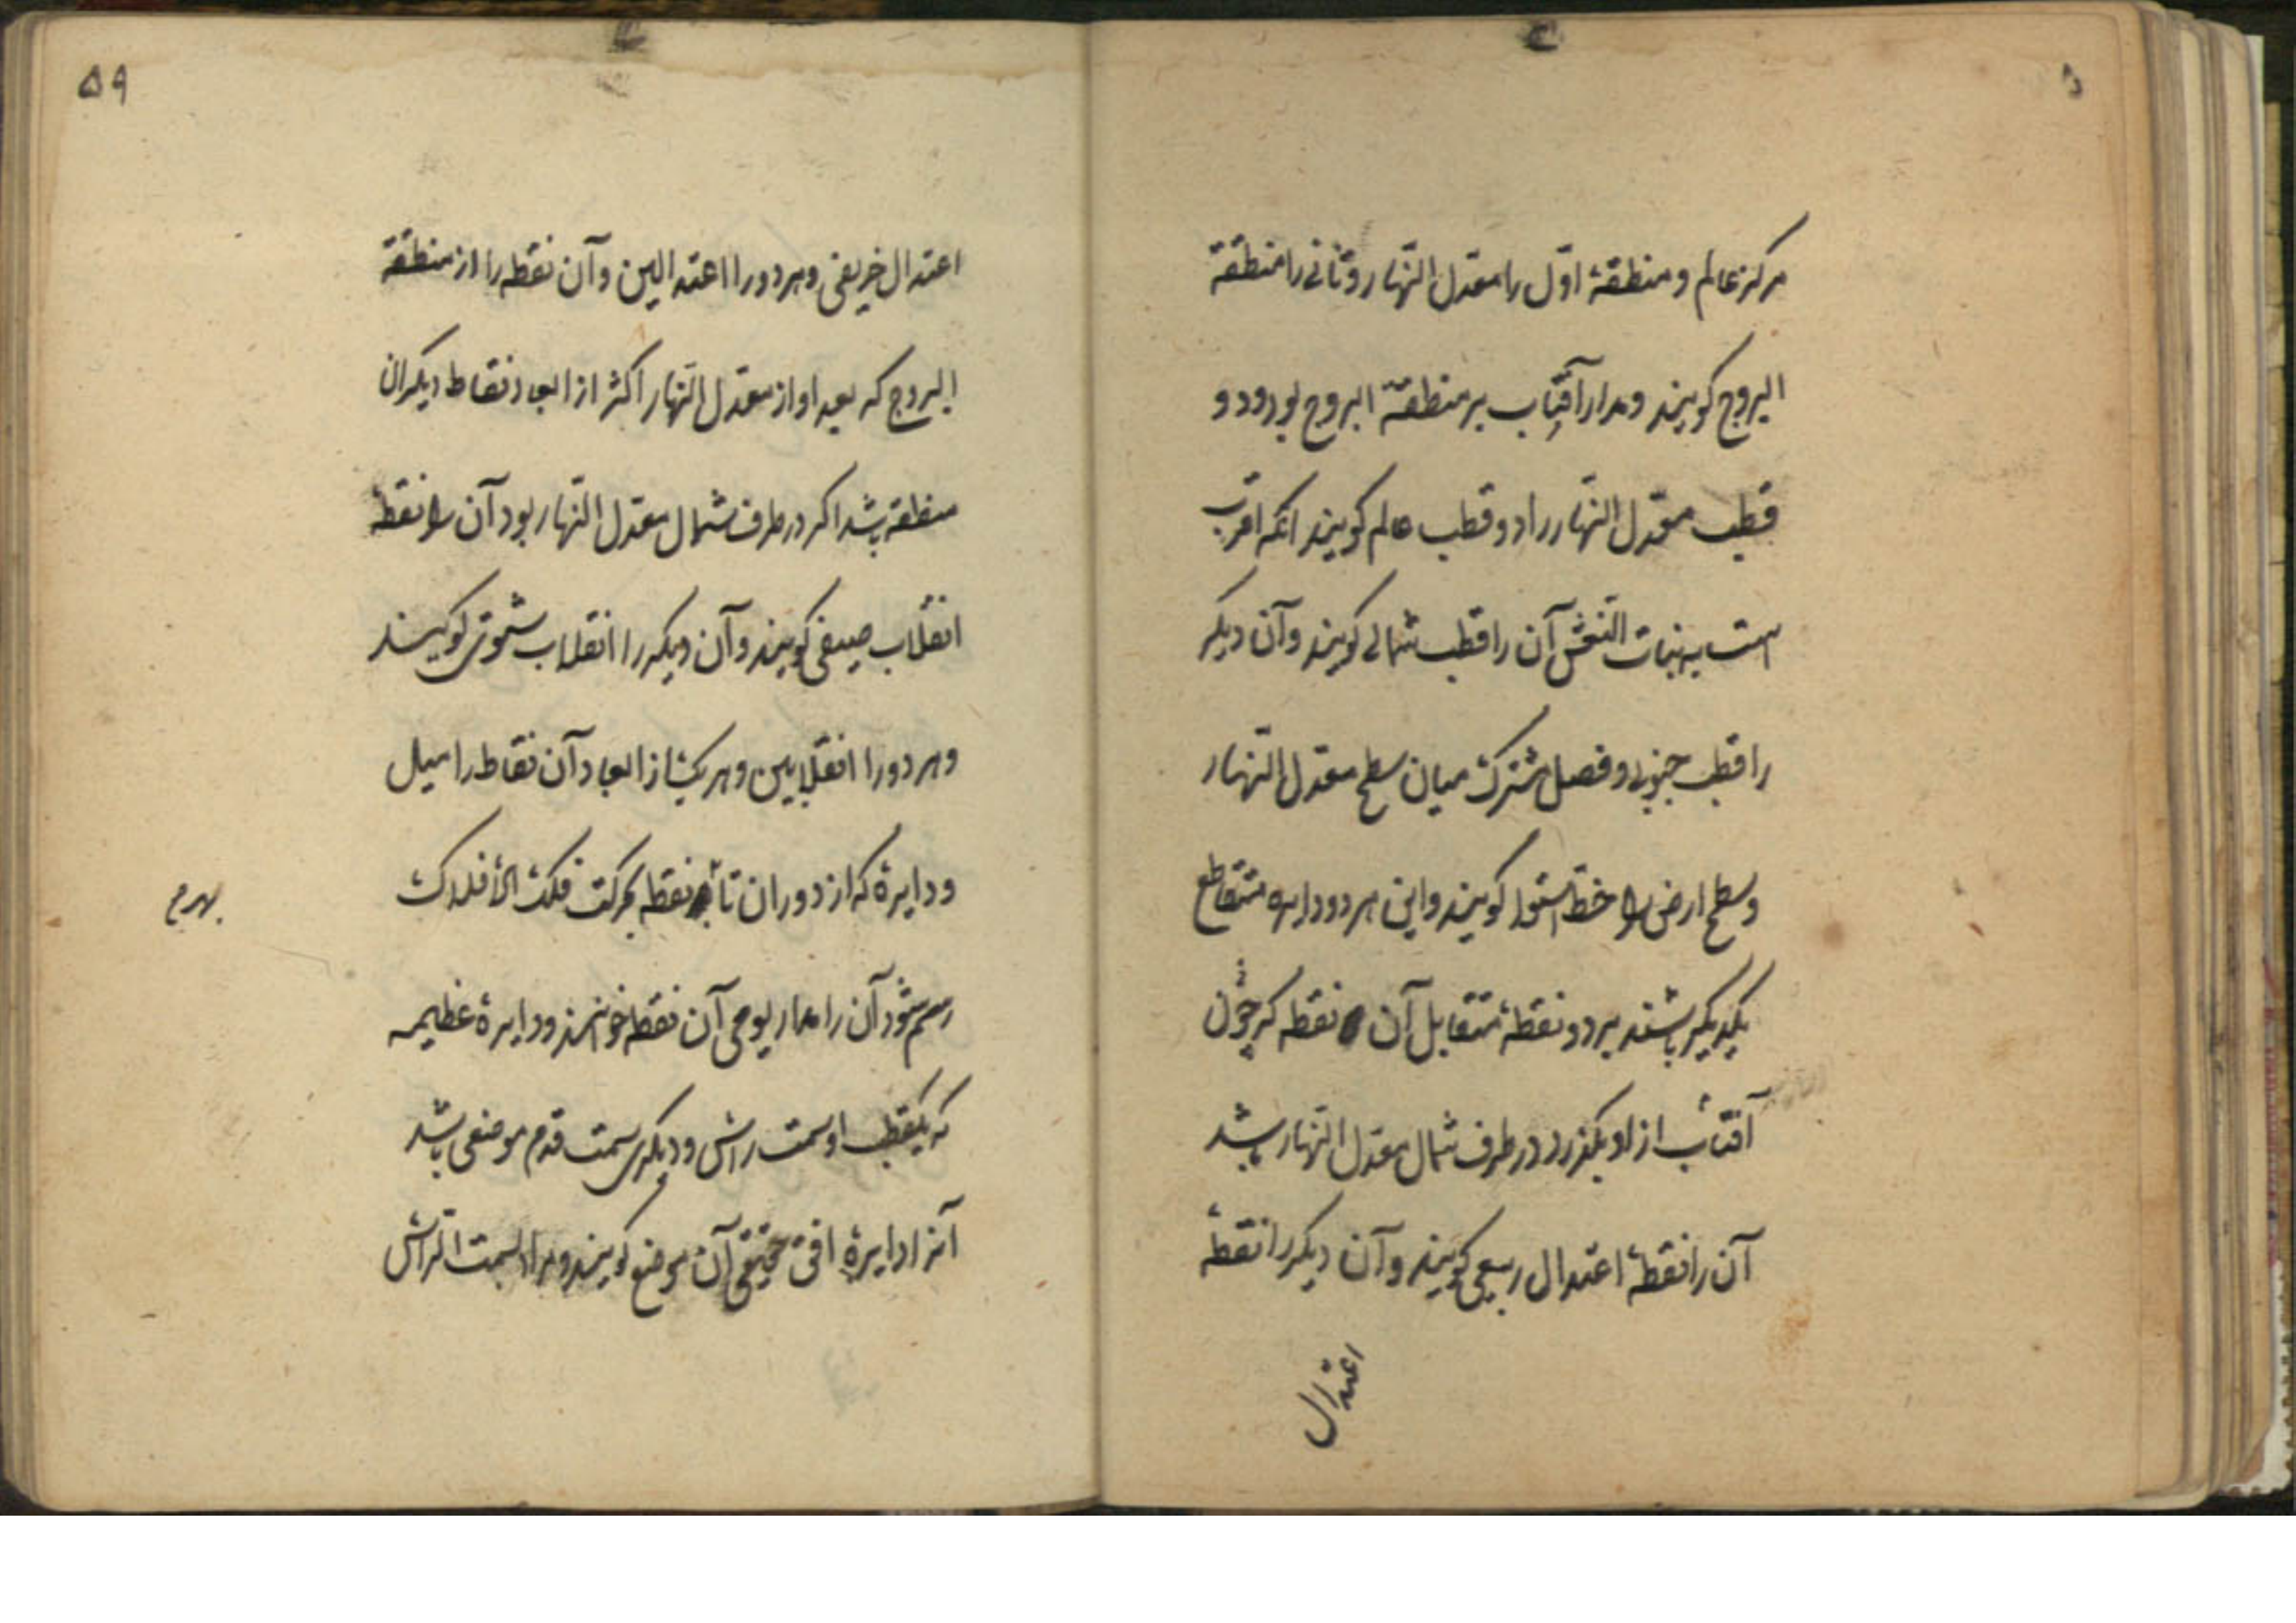 مرکز عالم و منطقهٔ اوّل را معدّل النّهار و ثانی را منطقة
البروج کویند و مدار آفتاب بر منطقة البروج بود و دو
قطب معدّل النّهار را دو قطب عالم کویند آنکه اقرب
است به بنات النّعش آن را قطب شمالی کویند و آن دیکر
را قطب جنوبی و فصل مشترک میان سطح معدّل النّهار
و سطح ارض را خطّ استوا کویند و این هر دو دایره متقاطع
یکدیکر باشند بر دو نقطهٔ متقابل آن نقطه که چون
آفتاب از او بکذرد در طرف شمال معدّل النّهار باشد
آن را نقطهٔ اعتدال ربیعی کویند و آن دیکر را نقطهٔ
اعتدال
۵۹
اعتدال خریفی و هر دو را اعتدالین و آن نقطه را از منطقة
البروج که بعد او از معدّل النّهار اکثر از ابعاد نقاط دیکر آن
منطقه باشد اکر در طرف شمال معدّل النّهار بود آن را نقطهٔ
انقلاب صیفی کویند و آن دیکر را انقلاب شتوی کویند
و هر دو را انقلابین و هر یک از ابعاد آن نقاط را میل
و دایرهٔ که از دوران نقطه بحرکت فلک الأفلاک
رسم شود آن را مدار یومی آن نقطه خوانند و دایرهٔ عظیمه
که یکقطب او سمت رأس و دیکری سمت قدم موضعی باشد
آنرا دایرهٔ افق حقیقی آن موضع کویند و مراد بسمت الرّأس